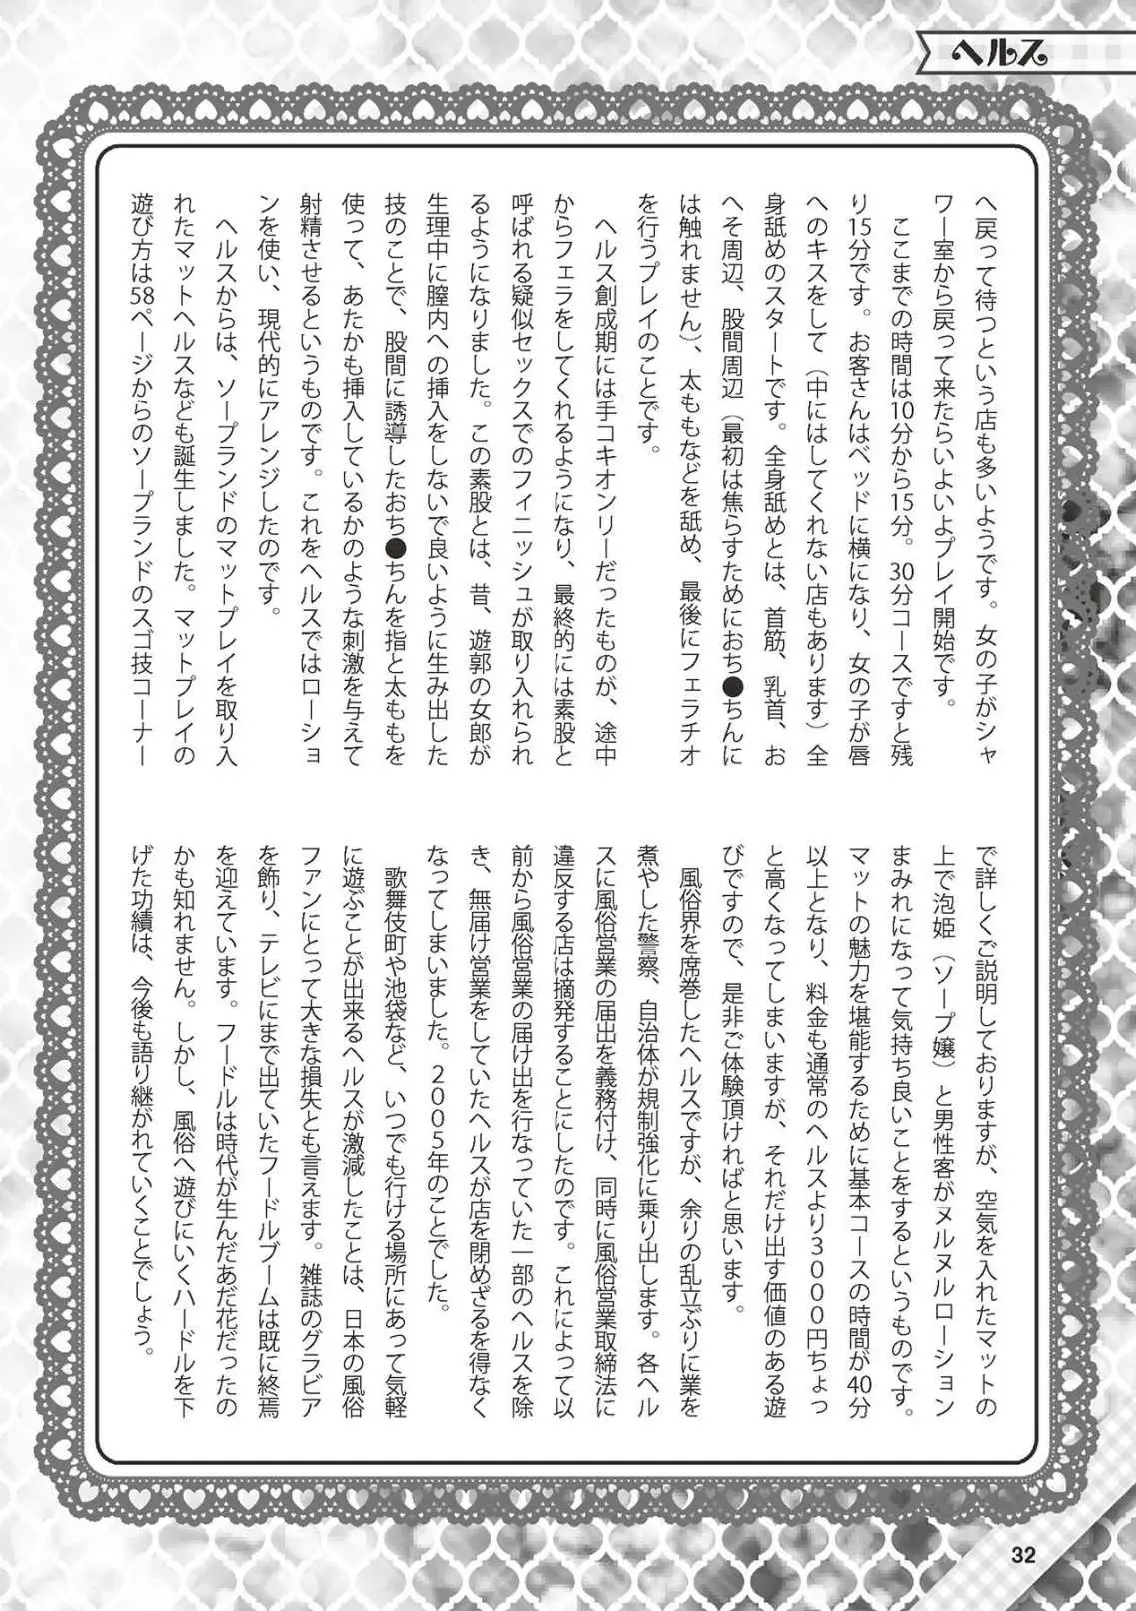 ヘルス
へ戻って待つという店も多いようです。女の子がシャ
ワー室から戻って来たらいよいよプレイ開始です。
ここまでの時間は10分から15分。30分コースですと残
り15分です。お客さんはベッドに横になり、女の子が唇
へのキスをして（中にはしてくれない店もあります）全
身舐めのスタートです。全身舐めとは、首筋、乳首、お
へそ周辺、股間周辺（最初は焦らすためにおち●ちんに
は触れません）、太ももなどを舐め、最後にフェラチオ
を行うプレイのことです。
ヘルス創成期には手コキオンリーだったものが、途中
からフェラをしてくれるようになり、最終的には素股と
呼ばれる疑似セックスでのフィニッシュが取り入れられ
るようになりました。この素股とは、昔、遊郭の女郎が
生理中に膣内への挿入をしないで良いように生み出した
技のことで、股間に誘導したおち●ちんを指と太ももを
使って、あたかも挿入しているかのような刺激を与えて
射精させるというものです。これをヘルスではローショ
ンを使い、現代的にアレンジしたのです。
ヘルスからは、ソープランドのマットプレイを取り入
れたマットヘルスなども誕生しました。マットプレイの
遊び方は58ページからのソープランドのスゴ技コーナー
で詳しくご説明しておりますが、空気を入れたマットの
上で泡姫（ソープ嬢）と男性客がヌルヌルローション
まみれになって気持ち良いことをするというものです。
マットの魅力を堪能するために基本コースの時間が40分
以上となり、料金も通常のヘルスより3000円ちょっ
と高くなってしまいますが、それだけ出す価値のある遊
びですので、是非ご体験頂ければと思います。
風俗界を席巻したヘルスですが、余りの乱立ぶりに業を
煮やした警察、自治体が規制強化に乗り出します。各ヘル
スに風俗営業の届出を義務付け、同時に風俗営業取締法に
違反する店は摘発することにしたのです。これによって以
前から風俗営業の届け出を行なっていた一部のヘルスを除
き、無届け営業をしていたヘルスが店を閉めざるを得なく
なってしまいました。2005年のことでした。
歌舞伎町や池袋など、いつでも行ける場所にあって気軽
に遊ぶことが出来るヘルスが激減したことは、日本の風俗
ファンにとって大きな損失とも言えます。雑誌のグラビア
を飾り、テレビにまで出ていたフードルブームは既に終焉
を迎えています。フードルは時代が生んだあだ花だったの
かも知れません。しかし、風俗へ遊びにいくハードルを下
げた功績は、今後も語り継がれていくことでしょう。
32